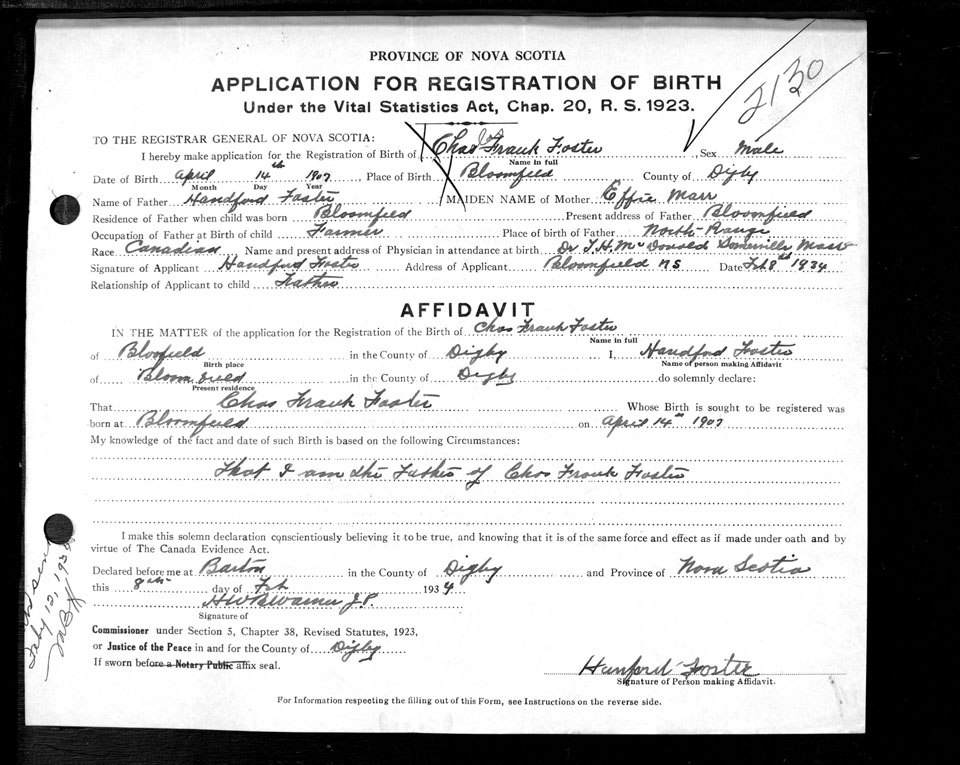 PROVINCE OF NOVA SCOTIA
2130
APPLICATION FOR REGISTRATION OF BIRTH
Under the Vital Statistics Act, Chap. 20, R. S. 1923.
TO THE REGISTRAR GENERAL OF NOVA SCOTIA:
I hereby make application for the Registration of Birth of Chas Frank Foster, Sex Male
Name in full
Date of Birth April 14th 1907, Place of Birth Bloomfield County of Digby
Month Day Year
Name of Father Handford Foster MAIDEN NAME of Mother Effie Marr
Residence of Father when child was born Bloomfield Present address of Father Bloomfield
Occupation of Father at Birth of child Farmer Place of birth of Father North Range
Race Canadian Name and present address of Physician in attendance at birth Dr T. H. McDonald Somerville Mass
Signature of Applicant Handford Foster Address of Applicant Bloomfield NS Date Feb 8th 1934
Relationship of Applicant to child Father
AFFIDAVIT
IN THE MATTER of the application for the Registration of the Birth of Chas Frank Foster
Name in full
of Bloofield in the County of Digby I, Handford Foster
Birth place Name of person making Affidavit
of Bloomfield in the County of Digby do solemnly declare:
Present residence
That Chas Frank Foster Whose Birth is sought to be registered was
born at Bloomfield on April 14th 1907
My knowledge of the fact and date of such Birth is based on the following Circumstances:
That I am the Father of Chas Frank Foster
I make this solemn declaration conscientiously believing it to be true, and knowing that it is of the same force and effect as if made under oath and by
virtue of The Canada Evidence Act.
Declared before me at Barton in the County of Digby and Province of Nova Scotia
this 8th day of Feb 1934
H W B Warner J.P.
Signature of
Commissioner under Section 5, Chapter 38, Revised Statutes, 1923,
or Justice of the Peace in and for the County of Digby
If sworn before a Notary Public affix seal.
Hanford Foster
Signature of Person making Affidavit.
For Information respecting the filling out of this Form, see Instructions on the reverse side.
sent
Feby 12, 1934